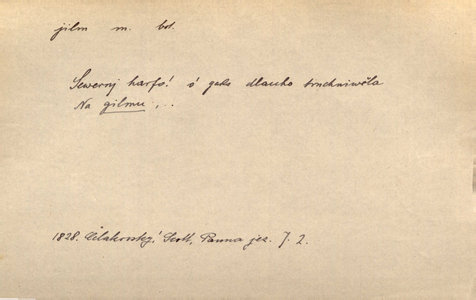 jilm m. bot.
Severnj harfo! ó gako dlauho truchniwěla
Na gilmu, ..
1828. Čelakovský, Scott, Panna jez. J. 2.